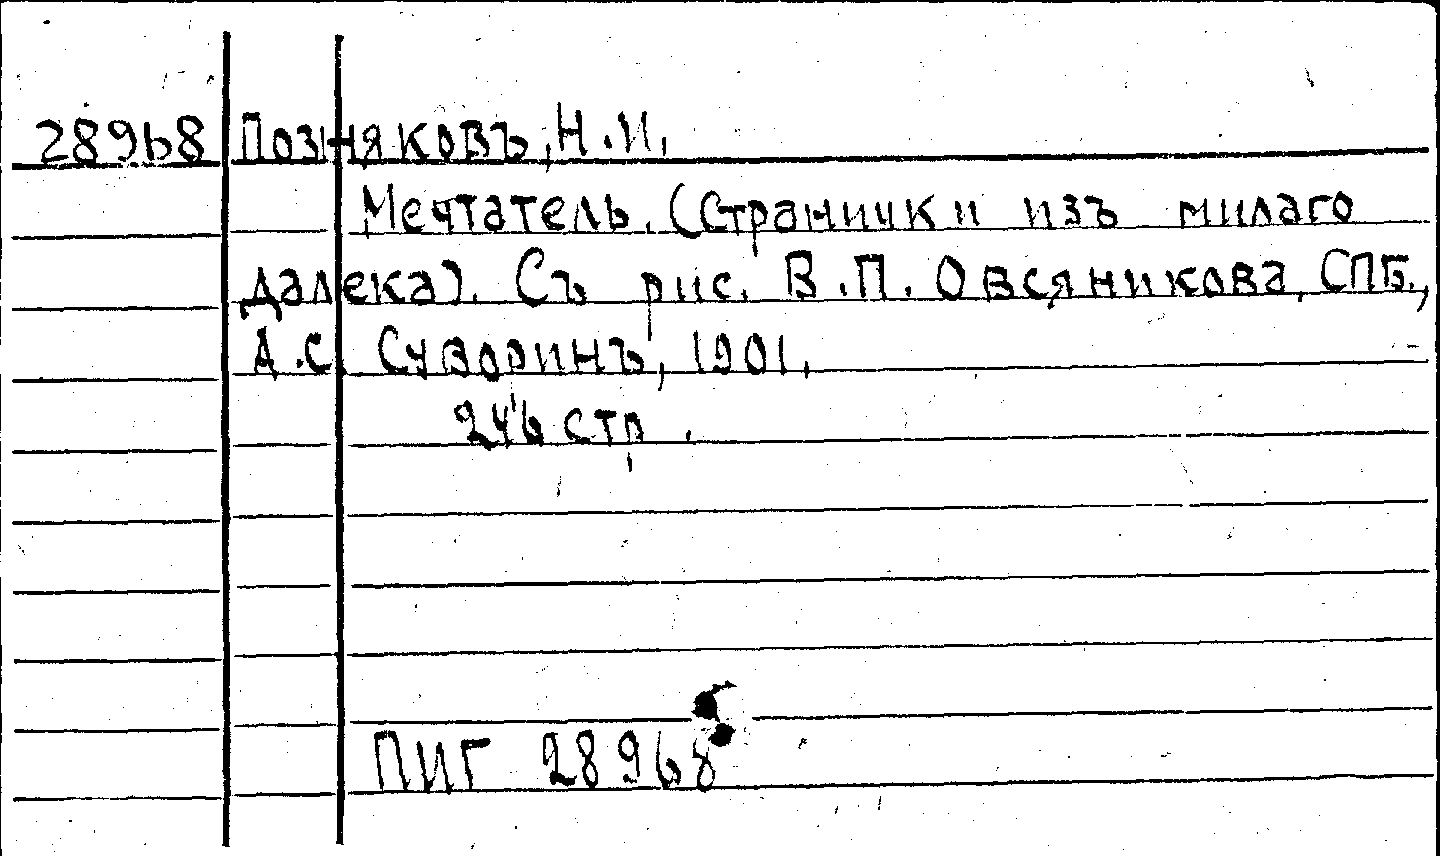 28968 Позняковъ, Н.И.
Мечтатель. (Странички изъ милаго
далека). Съ рис. В.П. Овсяникова, СПБ.,
А.С. Суворинъ, 1901.
246 стр.
ПИГ 28968